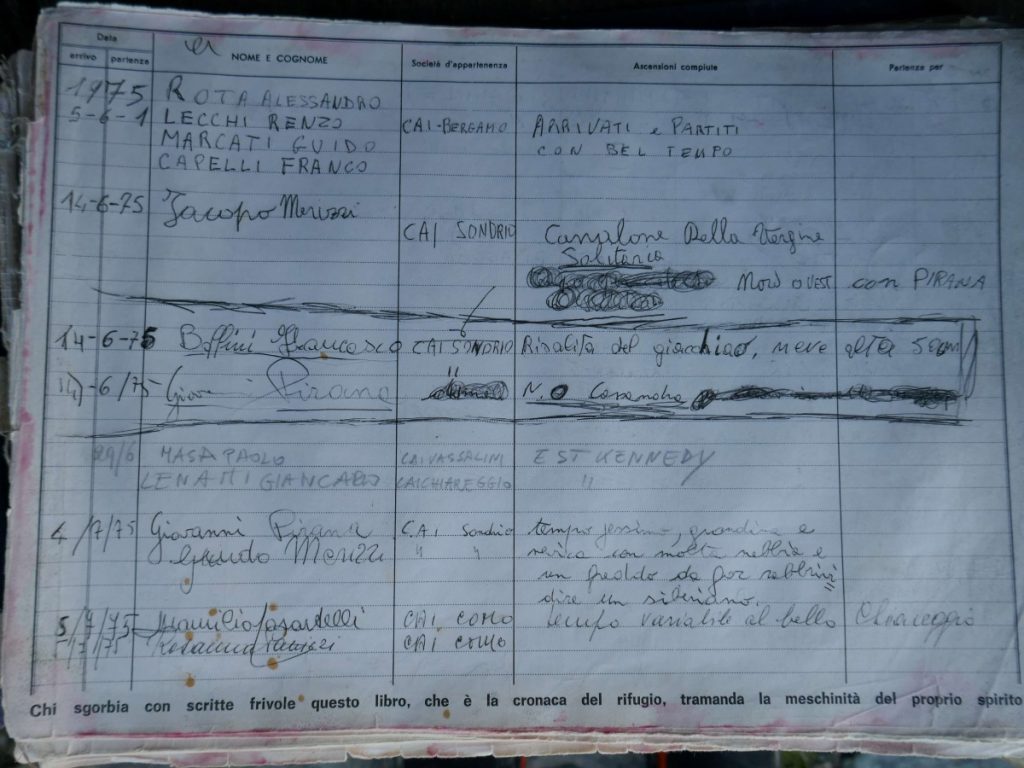 Data
arrivo partenza NOME E COGNOME Società d'appartenenza Ascensioni compiute Partenza per
1975 ROTA ALESSANDRO
5-6-1 LECCHI RENZO CAI-BERGAMO ARRIVATI e PARTITI
MARCATI GUIDO CON BEL TEMPO
CAPELLI FRANCO
14-6-75 Jacopo Merizzi
CAI SONDRIO Canalone Della Vergine
Solitaria
NORD OVEST con PIRANA
14-6-75 Boffini Francesco CAI SONDRIO Risalita del giacchiao, neve alta 50cm
-6/75 Giovanni Pirana " N.O Cassandra
29/6 MASA PAOLO CAI VASSALINI EST KENNEDY
LENATTI GIANCARLO CAI CHIAREGGIO "
4/7/75 Giovanni Pirana C.A.I Sondrio tempo, grandina e
Merizzi " " nevica con molta nebbia e
un freddo da far rabbrivi
dire un siberiano.
5/7/75 CAI COMO tempo variabile al bello Chiareggio
/75 CAI COMO
Chi sgorbia con scritte frivole questo libro, che è la cronaca del rifugio, tramanda la meschinità del proprio spirito